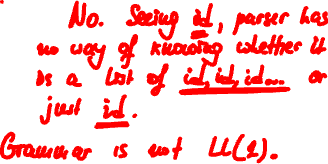 No. Seeing id, parser has
no way of knowing whether it
is a list of id, id, id... or
just id.
Grammar is not LL(1).